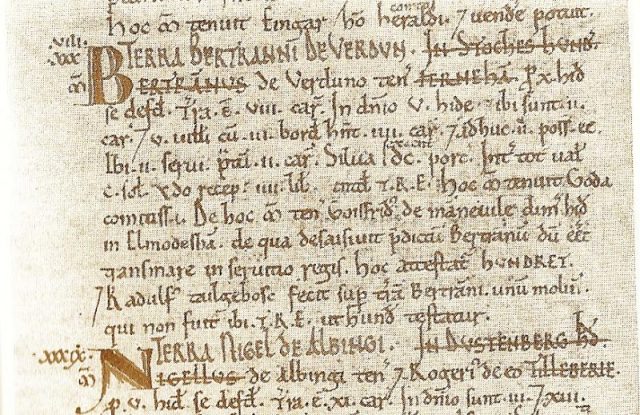 comitis
Hoc m̄ tenuit Fingar hō heraldi. 7 uende potuit.
viii.
xxx. TERRA BERTRANNI DE VERDUN. IN STOCHES HUND.
m̄ BERTRĀNUS de Verduno teñ FERNEHĀ. P x hid
se defđ. Tra. ē. viii. car̃. In dñio v. hide. 7 ibi sunt. ii.
car̃. 7 v. uilƚi cū. iii. bord hñt. iiii. car̃. 7 adhuc. ii. poss. ee.
Ibi. ii. serui. p̃tū. ii. car̃. Silua DC. porc̃. Int tot uaƚ
c. soƚ. Qdo recep̃: iiii. lib. T.R.E. Hoc m̄ tenuit Goda
comitissa. De hoc m̄ teñ Goisfrid de maneuile dim̃ hid
in Elmodeshā. de qua desaisiuit p̃dictū Bertranū dū eēt
transmare in seruitio regis. hoc attestat̃ HUNDRET.
7 Radulf tailgebosc fecit sup trã Bertrani. unū molin̄.
qui non fuit ibi. T.R.E. ut hund testatur.
xxxix. TERRA NIGEL DE ALBINGI. IN DUSTENBERG HD.
m̄ NIGELLUS de Albingi teñ 7 Rogeri de eo TILLEBERIE.
p. v. hiđ se defđ. Tra. ē. xi. car̃. In dñio sunt. iii. 7 xiii.